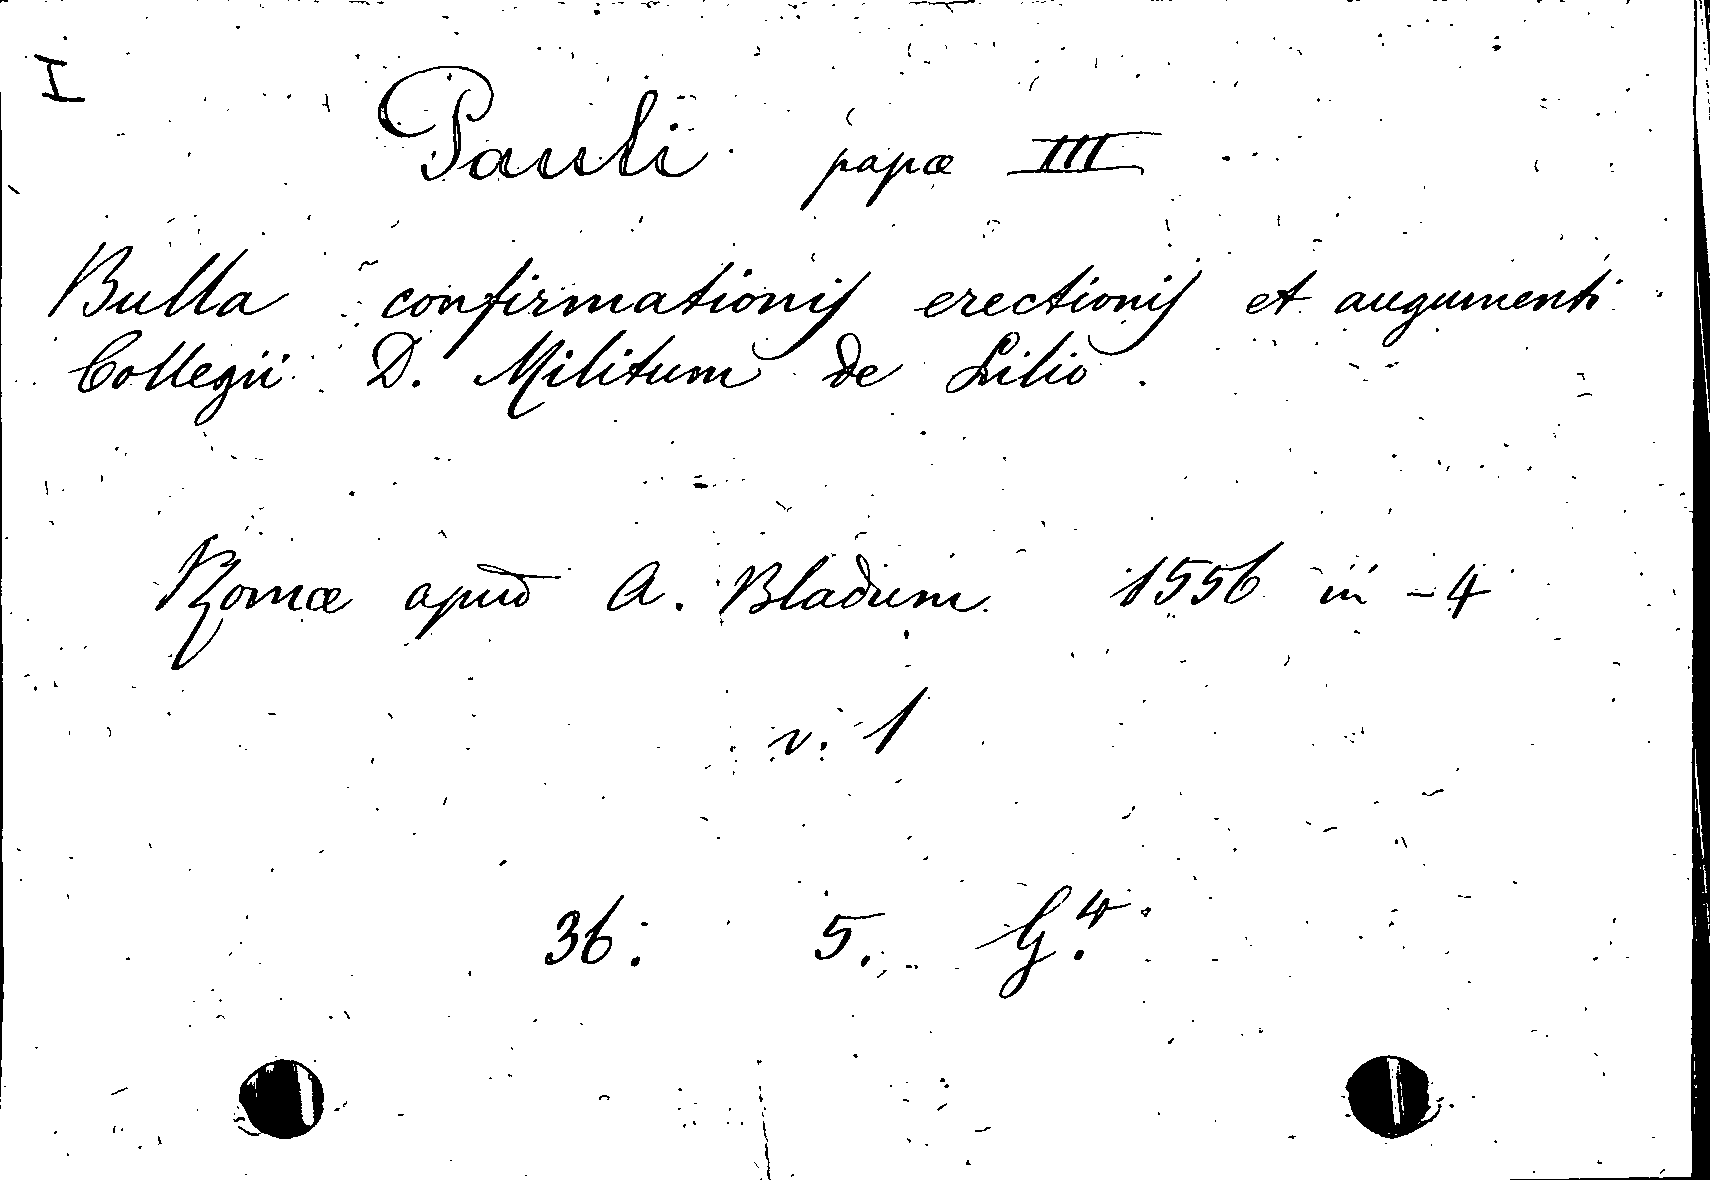 I
Pauli papæ III
Bulla confirmationis erectionis et augumenti
Collegii D. Militum de Lilio.
Romæ apud A. Bladum 1556 in -4
v. 1
36. 5. G.4